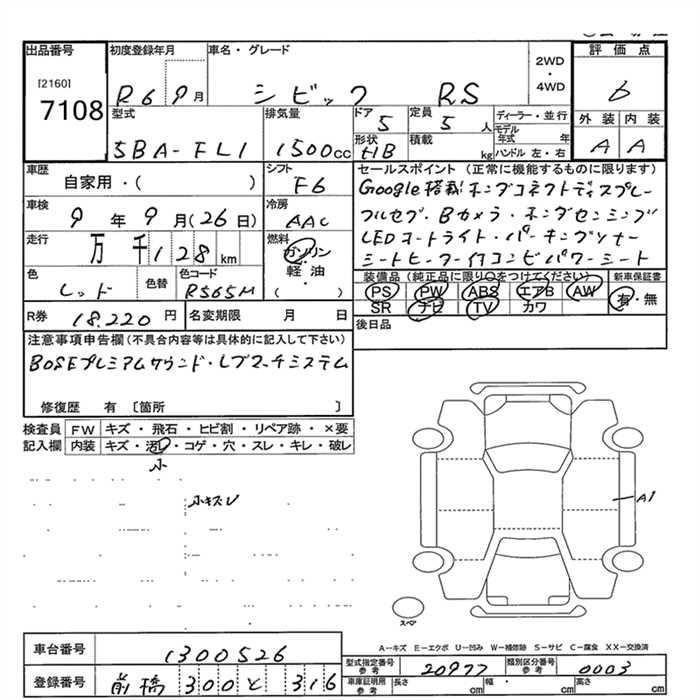 出品番号 初度登録年月 車名・グレード 評価点
[2160]
7108
R6 9月 シビック RS 2WD・4WD 6
型式 排気量 ドア 定員 ディーラー・並行 外装 内装
5BA-FL1 1500cc 5 5人 モデル年式 年 A A
形状 積載 ハンドル 左・右
HB kg
車歴 シフト セールスポイント(正常に機能するものに限ります)
自家用・( ) F6 Google搭載ホンダコネクトディスプレー
車検 冷房 フルセグ・Bカメラ・ホンダセンシング
9年9月(26日) AAC LEDオートライト・パーキングソナー
走行 燃料 シートヒーター付コンビパワーシート
万千128km ガソリン・軽油・( )
色 色替 色コード 装備品(純正品に限り○をつけてください) 新車保証書
レッド R565M PS PW ABS エアB AW 有・無
SR ナビ TV カワ
R券 18.220円 名変期限 月 日 後日品
注意事項申告欄(不具合内容等は具体的に記入して下さい)
BOSEプレミアムサウンド・レブマッチシステム
修復歴 有〔箇所 〕
検査員 FW キズ・飛石・ヒビ割・リペア跡・×要
記入欄 内装 キズ・汚レ・コゲ・穴・スレ・キレ・破レ
小
小キズレ
A1
スペア
A―キズ E―エクボ U―凹み W―補修跡 S―サビ C―腐食 XX―交換済
車台番号 1300526
型式指定番号参考 20977 類別区分番号参考 0003
登録番号 前橋 300 と 316
車庫証明用参考 長さ cm 幅・ cm 高さ cm